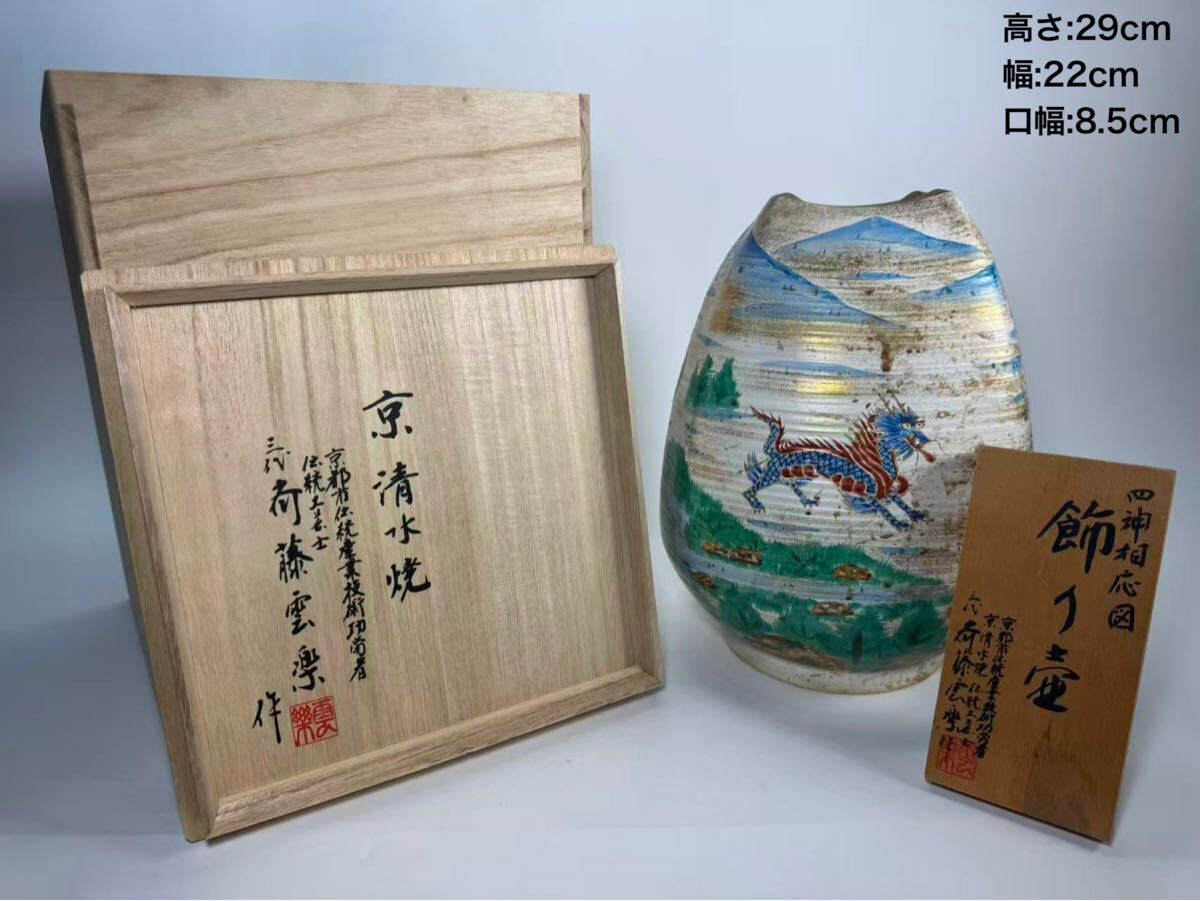 高さ:29cm
幅:22cm
口幅:8.5cm
京清水焼
京都市伝統産業技術功労者
伝統工芸士
三代 荷藤雲楽
作
雲楽
四神相応図
飾り壷
京都市伝統産業技術功労者
京清水焼 伝統工芸士
三代 荷藤雲楽作